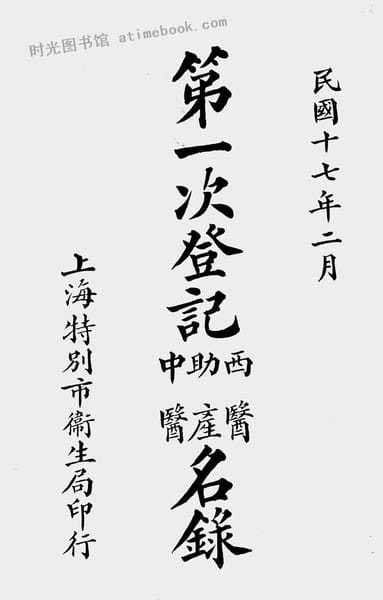 时光图书馆 atimebook.com
民國十七年二月
第一次登記
西醫
助產
中醫
名錄
上海特別市衞生局印行